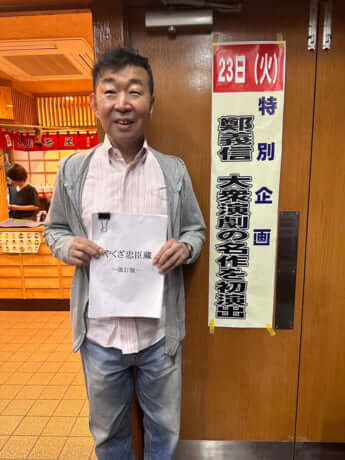 23日（火）
特別企画
鄭義信 大衆演劇の名作を初演出
やくざ忠臣蔵
―改訂版―